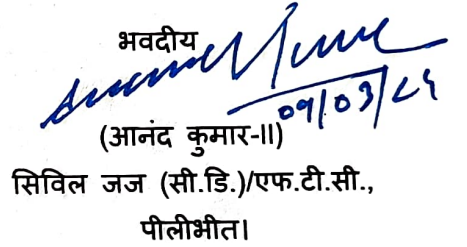 भवदीय
09/03/24
(आनंद कुमार-II)
सिविल जज (सी.डि.)/एफ.टी.सी.,
पीलीभीत।